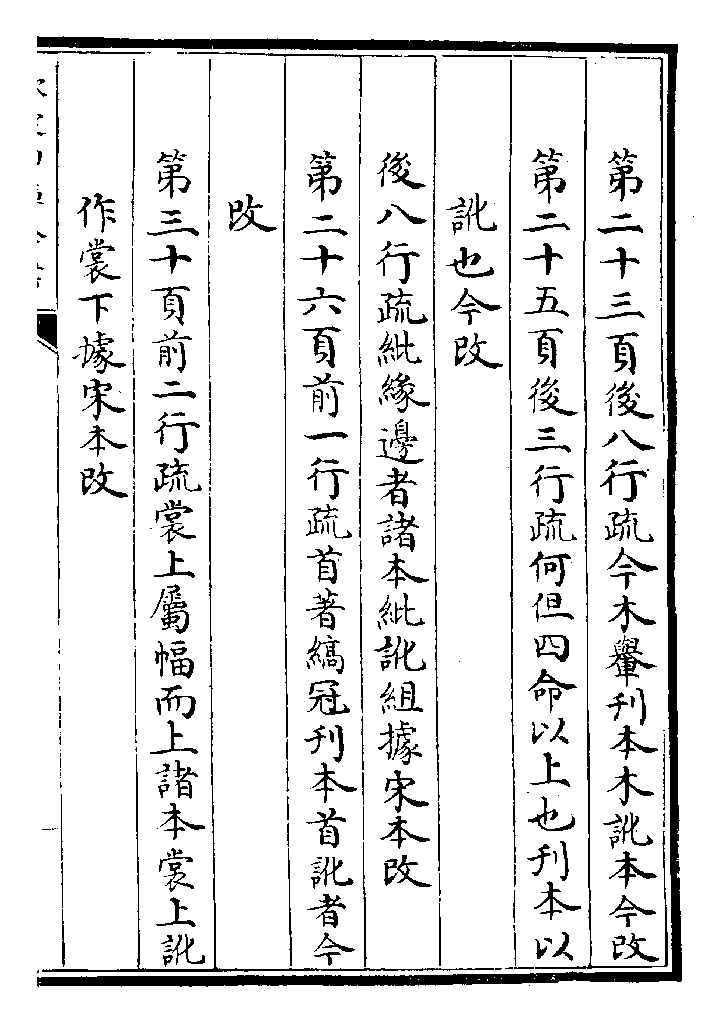 第二十三頁後八行疏今木轝刊本木訛本今改
第二十五頁後三行疏何但四命以上也刊本以
訛也今改
後八行疏紕緣邊者諸本紕訛組據宋本改
第二十六頁前一行疏首著縞冠刊本首訛者今
改
第三十頁前二行疏裳上屬幅而上諸本裳上訛
作裳下據宋本改